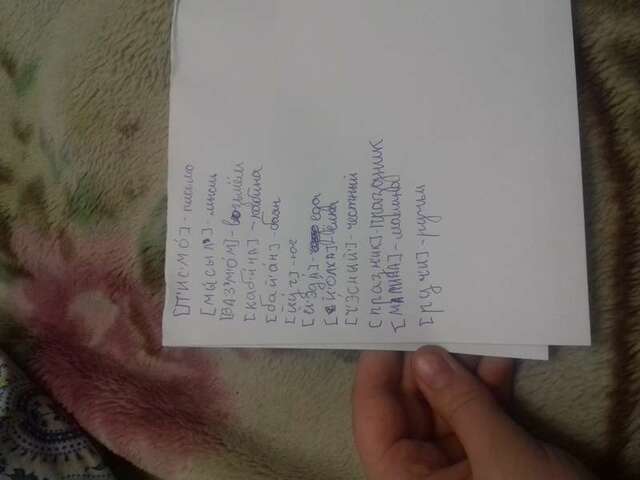 [П'ИС'МО́] - письмо
[МЫ́СЫЛ'] - мысль
[ВАЗ'МО́М] - возьмём
[КАБИ́НА] - кабина
[бай'а́н] - баян
[йу́г] - юг
[Й'ЭДА́] - еда
[Й'ОЛКА] - ёлка
[Ч'Э́СНИЙ'] - честный
[празник] - праздник
[МАЛИНА] - малина
[ручи] - ручьи